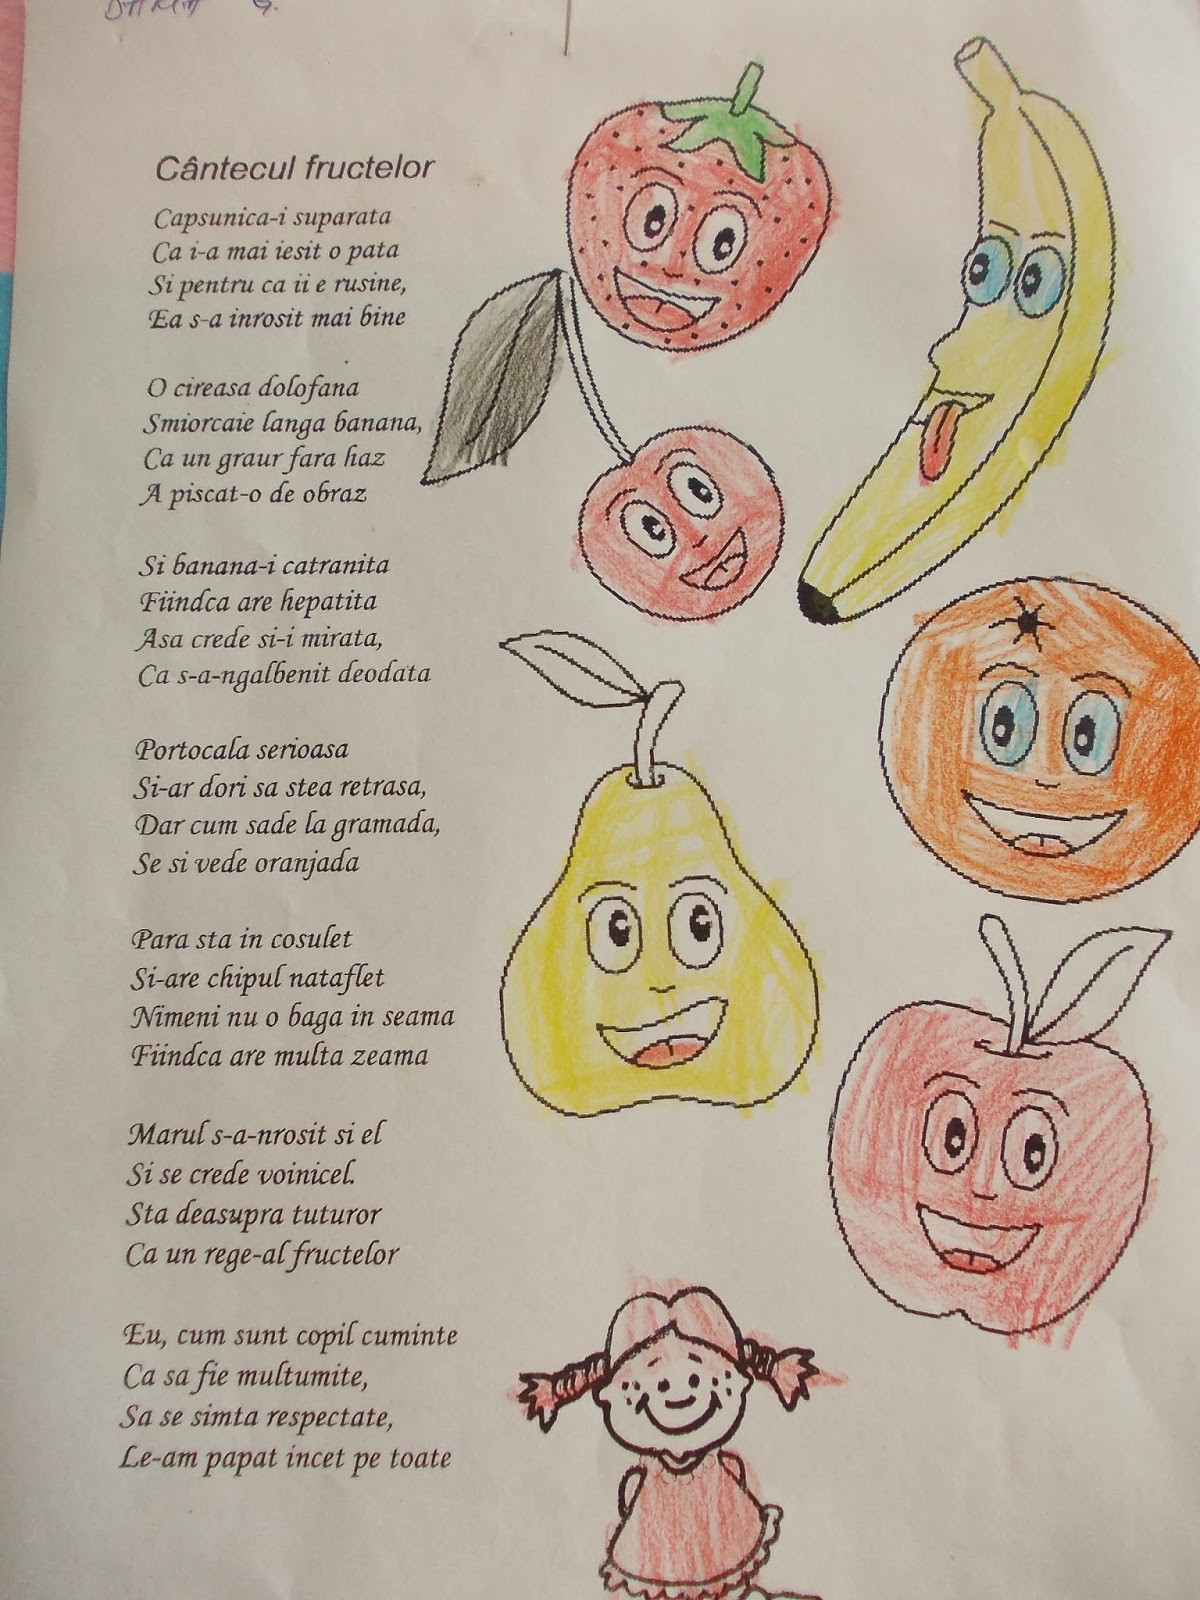 DARIA G.
Cântecul fructelor
Capsunica-i suparata
Ca i-a mai iesit o pata
Si pentru ca ii e rusine,
Ea s-a inrosit mai bine
O cireasa dolofana
Smiorcaie langa banana,
Ca un graur fara haz
A piscat-o de obraz
Si banana-i catranita
Fiindca are hepatita
Asa crede si-i mirata,
Ca s-a-ngalbenit deodata
Portocala serioasa
Si-ar dori sa stea retrasa,
Dar cum sade la gramada,
Se si vede oranjada
Para sta in cosulet
Si-are chipul nataflet
Nimeni nu o baga in seama
Fiindca are multa zeama
Marul s-a-nrosit si el
Si se crede voinicel.
Sta deasupra tuturor
Ca un rege-al fructelor
Eu, cum sunt copil cuminte
Ca sa fie multumite,
Sa se simta respectate,
Le-am papat incet pe toate